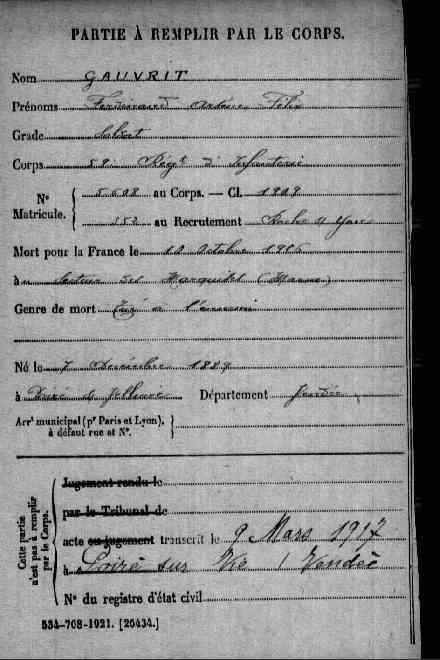 PARTIE À REMPLIR PAR LE CORPS.
Nom GAUVRIT
Prénoms Ferdinand Félix
Grade
Corps 58 Régt d'Infanterie
Nº Matricule. 5.608 au Corps. — Cl. 1909
au Recrutement Roche s/ Yon
Mort pour la France le 10 Octobre
à Secteur (Marne)
Genre de mort Tué à l'ennemi
Né le 7 Décembre 1889
à Département Vendée
Arrt municipal (pr Paris et Lyon),
à défaut rue et Nº.
Cette partie n'est pas à remplir par le Corps.
Jugement rendu le
par le Tribunal de
acte ou jugement transcrit le 9 Mars 1917
à Poiré sur Vie / Vendée
Nº du registre d'état civil
534-708-1921. [26434.]